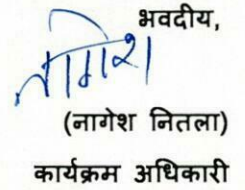 भवदीय,
नागेश
(नागेश नितला)
कार्यक्रम अधिकारी